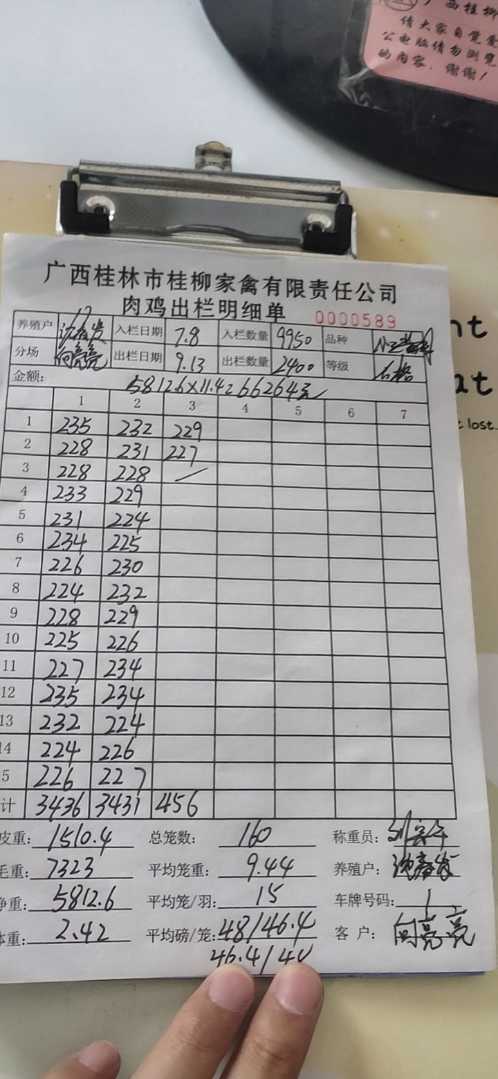 广西桂柳
请大家自觉爱
公电脑请勿浏览
的内容,谢谢!
广西桂林市桂柳家禽有限责任公司
肉鸡出栏明细单 0000589
养殖户 入栏日期 7.8 入栏数量 9950 品种
分场 向亮亮 出栏日期 9.13 出栏数量 2400 等级 合格
金额: 5812.6×11.42 66264元
1 2 3 4 5 6 7
1 235 232 229
2 228 231 227
3 228 228
4 233 229
5 231 224
6 234 225
7 226 230
8 224 232
9 228 229
10 225 226
11 227 234
12 235 234
13 232 224
14 224 226
5 226 227
计 3436 3431 456
皮重: 1510.4 总笼数: 160 称重员:
毛重: 7323 平均笼重: 9.44 养殖户:
净重: 5812.6 平均笼/羽: 15 车牌号码:
体重: 2.42 平均磅/笼: 48/46.4 客户: 向亮亮
46.4/40
nt
at
t lost.